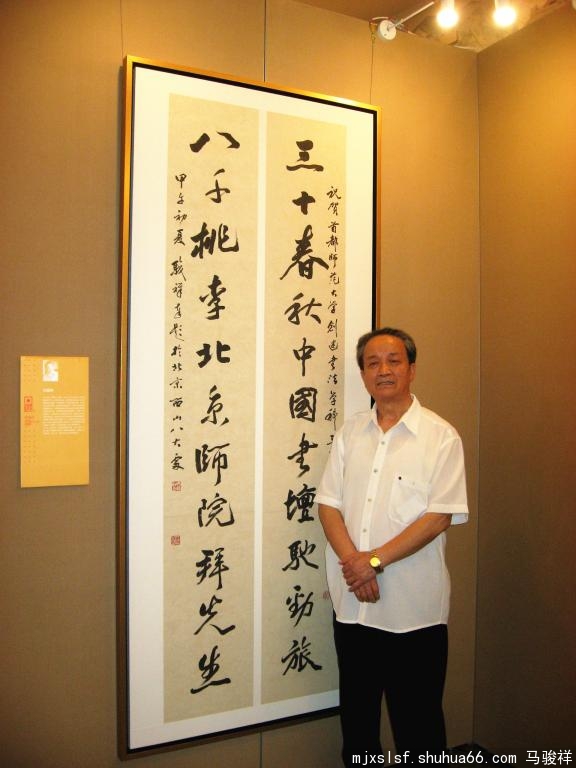 祝贺首都师范大学创建书法学科三
三十春秋中國书壇馳勁旅
八千桃李北京師院拜先生
甲午初夏駿祥题於北京西山八大處
mjxslsf.shuhua66.com 马骏祥